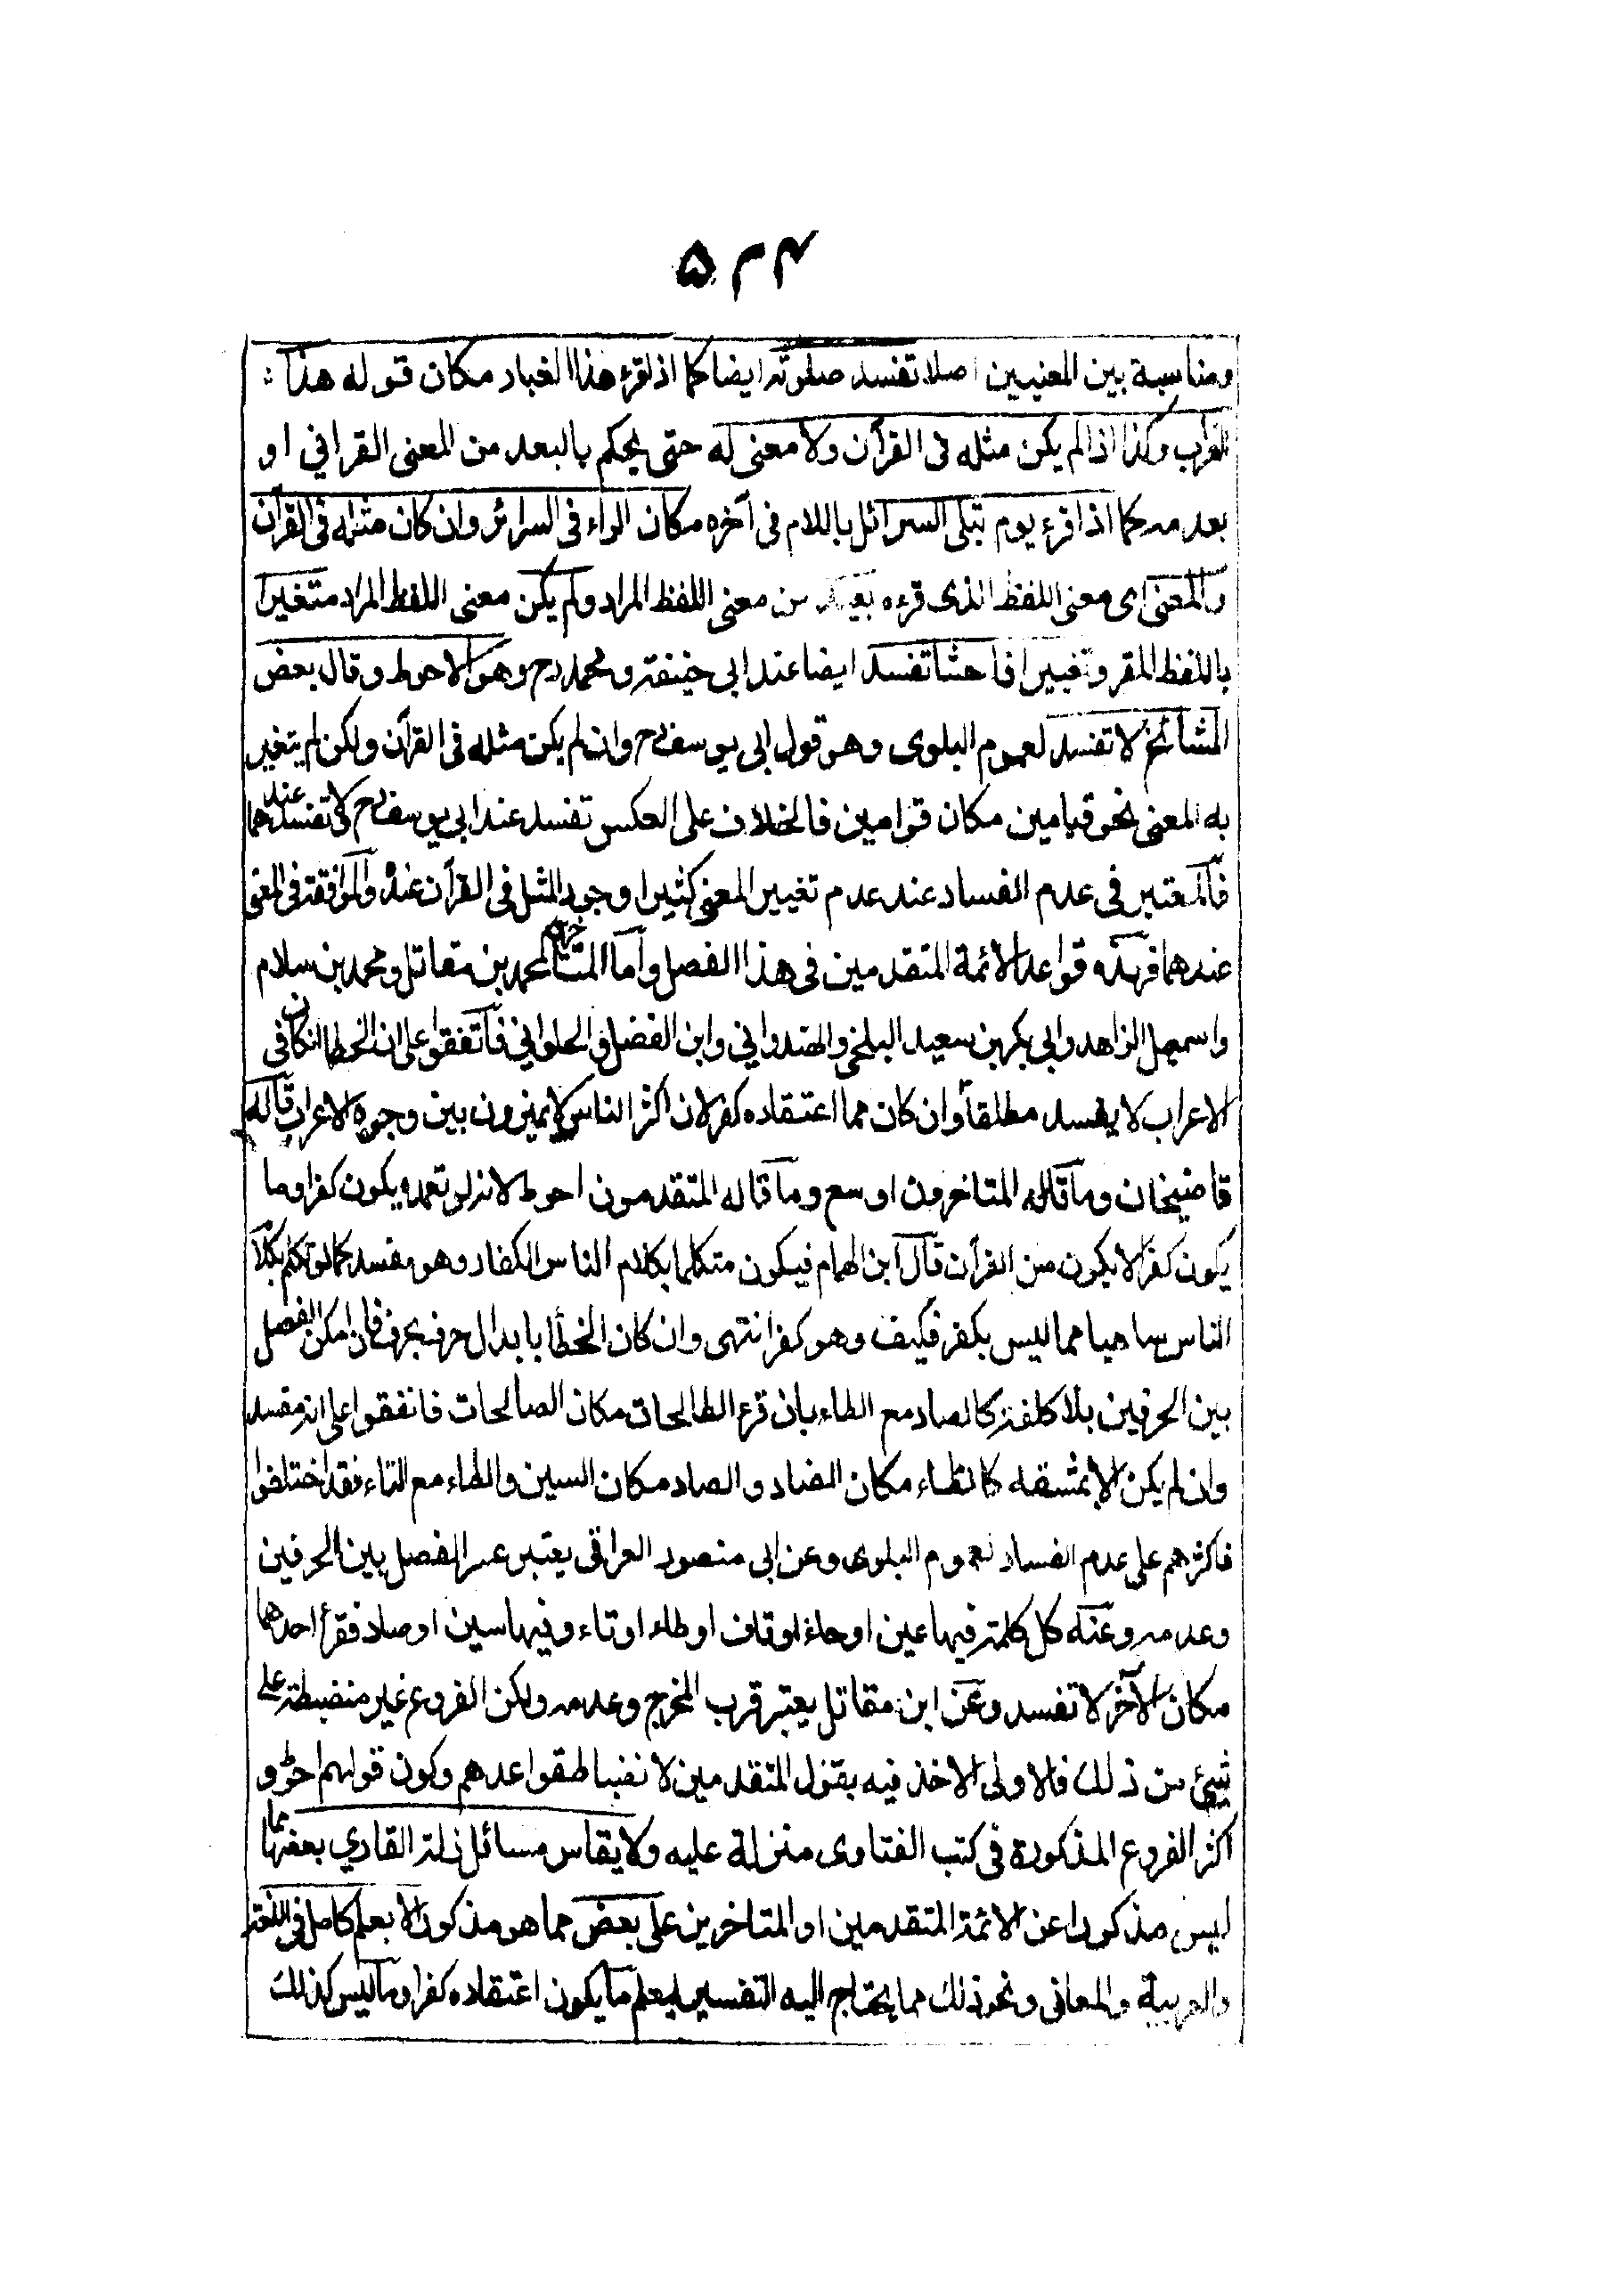 ۴۲۵
ومناسبة بين المعنيين اصلا تفسد صلوته ايضا كما اذا قرء هذا الغبار مكان قوله هذا
الغراب وكذا اذا لم يكن مثله فى القرآن ولا معنى له حتى يحكم بالبعد من المعنى القراني او
بعدمه كما اذا قرء يوم تبلى السرائل باللام فى آخره مكان الراء فى السرائر وان كان مثله فى القرآن
والمعنى اى معنى اللفظ الذى قرءه بعيد من معنى اللفظ المراد ولم يكن معنى اللفظ المراد متغيرا
باللفظ المقر وتغييرا فاحشا تفسد ايضا عند ابى حنيفة ومحمد رح وهو الاحوط وقال بعض
المشائخ لا تفسد لعموم البلوى وهو قول ابى يوسف رح وان لم يكن مثله فى القرآن ولكن لم يتغير
به المعنى نحو قيامين مكان قوامين فالخلاف على العكس تفسد عند ابى يوسف رح لا تفسد عندهما
فالمعتبر فى عدم الفساد عند عدم تغيير المعنى كثيرا وجود المثل فى القرآن عنده والموافقة فى المعنى
عندهما فهذه قواعد الائمة المتقدمين فى هذا الفصل واما المتأخرون كمحمد بن مقاتل ومحمد بن سلام
واسمعيل الزاهد وابى بكر بن سعيد البلخى والهندوانى وابن الفضل والحلوانى فاتفقوا على ان الخطا ان كان فى
الاعراب لا يفسد مطلقا وان كان مما اعتقاده كفر لان اكثر الناس لا يميزون بين وجوه الاعراب قاله
قاضيخان وما قاله المتاخرون اوسع وما قاله المتقدمون احوط لانه لو تعمد يكون كفرا وما
يكون كفرا لا يكون من القرآن قال ابن الهمام فيكون متكلما بكلام الناس الكفار وهو مفسد كما لو تكلم بكلام
الناس ساهيا مما ليس بكفر فكيف وهو كفر انتهى وان كان الخطأ بابدال حرف بحرف فان امكن الفصل
بين الحرفين بلا كلفة كالصاد مع الطاء بان قرء الطالحات مكان الصالحات فاتفقوا على انه مفسد
وان لم يكن الا بمشقة كالظاء مكان الضاد والصاد مكان السين والطاء مع التاء فقد اختلفوا
فاكثرهم على عدم الفساد لعموم البلوى وعن ابى منصور العراقى يعتبر عسر الفصل بين الحرفين
وعدمه وعنه كل كلمة فيها عين او حاء او قاف او طاء او تاء وفيها سين او صاد فقرأ احدهما
مكان الآخر لا تفسد وعن ابن مقاتل يعتبر قرب المخرج وعدمه ولكن الفروع غير منضبطة على
شيئ من ذلك فالاولى الاخذ فيه بقول المتقدمين لانضباط قواعدهم وكون قولهم احوط و
اكثر الفروع المذكورة فى كتب الفتاوى منزلة عليه ولا يقاس مسائل زلة القاري بعضها مما
ليس مذكورا عن الائمة المتقدمين او المتاخرين على بعض مما هو مذكور الا بعلم كامل فى اللغة
والعربية والمعانى ونحو ذلك مما يحتاج اليه التفسير ليعلم ما يكون اعتقاده كفرا وما ليس كذلك